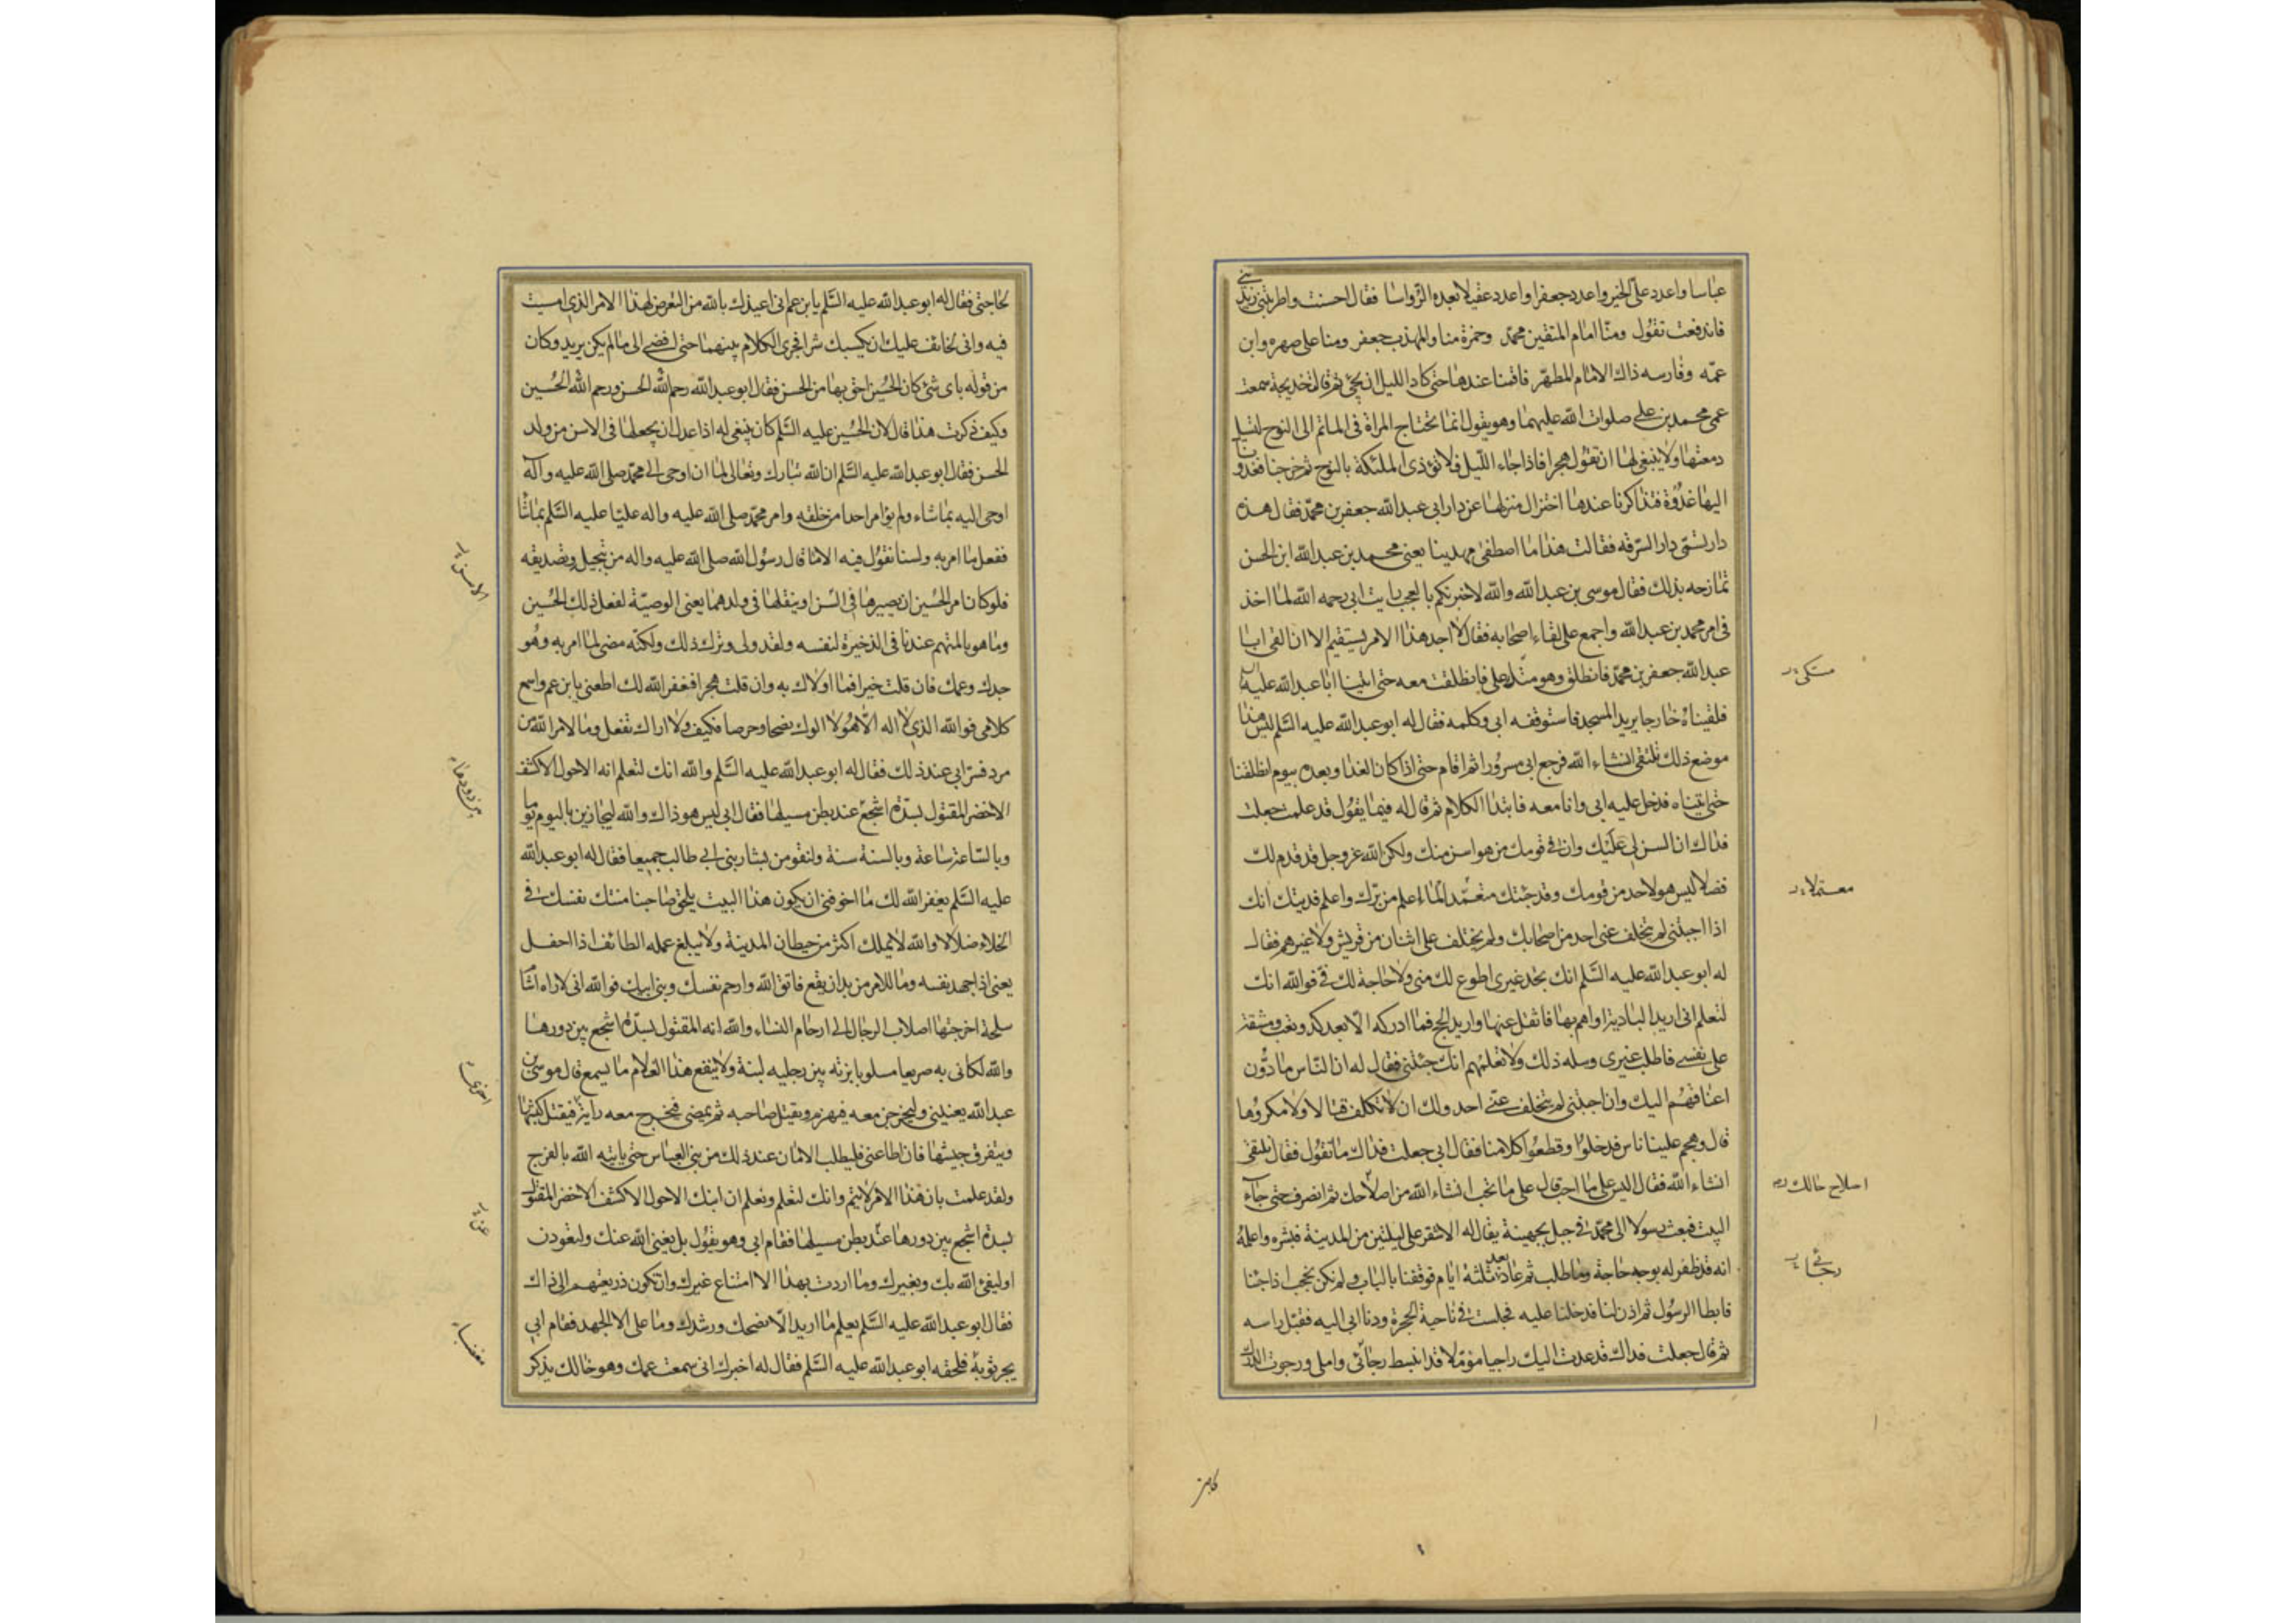 عباسا واعدد على الخير واعدد جعفرا واعدد عقيلا بعده الرواسا فقال احسنت واطربتنى زيدينى
فاندفعت تقول ومنا امام المتقين محمد وحمزة منا والمهذب جعفر ومنا على صهره وابن
عمه وفارسه ذاك الامام المطهر فاقمنا عندها حتى كاد الليل ان يجئ ثم قالت خديجة سمعت
عمى محمد بن على صلوات الله عليهما وهو يقول انما تحتاج المراة فى الماتم الى النوح لتسيل
دمعتها ولا ينبغى لها ان تقول هجرا فاذا جاء الليل فلا تؤذى الملئكة بالنوح ثم خرجنا فغدونا
اليها غدوة فتذاكرنا عندها اختزال منزلها عن دار ابى عبدالله جعفر بن محمد فقال هذه
دار تسمى دار السرقه فقالت هذا ما اصطفى مهدينا يعنى محمد بن عبدالله ابن الحسن
تمازحه بذلك فقال موسى بن عبدالله والله لاخبرنكم بالعجب رايت ابى رحمه الله لما اخذ
فى امر محمد بن عبدالله واجمع على لقاء اصحابه فقال لا اجد هذا الامر يستقيم الا ان القى ابا
عبدالله جعفر بن محمد فانطلق وهو متك على فانطلقت معه حتى اتينا ابا عبدالله عليه
فلقيناه خارجا يريد المسجد فاستوقفه ابى وكلمه فقال له ابو عبدالله عليه السلم ليس هذا
موضع ذلك نلتقى انشاء الله فرجع ابى مسرورا ثم اقام حتى اذا كان الغد او بعده بيوم انطلقنا
حتى اتيناه فدخل عليه ابى وانا معه فابتدا الكلام ثم قال له فيما يقول قد علمت جعلت
فداك ان السن لى عليك وان فى قومك من هو اسن منك ولكن الله عزوجل قد قدم لك
فضلا ليس هو لاحد من قومك وقد جئتك متعمدا لما اعلم من برك واعلم فديتك انك
اذا اجبتنى لم يتخلف عنى احد من اصحابك ولم يختلف على اثنان من قريش ولا غيرهم فقال
له ابو عبدالله عليه السلم انك تجد غيرى اطوع لك منى ولا حاجة لك فى فوالله انك
لتعلم انى اريد البادية او اهم بها فاثقل عنها واريد الحج فما ادركه الا بعد كد وتعب ومشقة
على نفسى فاطلب غيرى وسله ذلك ولا تعلمهم انك جئتنى فقال له ان الناس مادون
اعناقهم اليك وان اجبتنى لم يتخلف عنى احد ولك ان لا تكلف قتالا ولا مكروها
قال وهجم علينا ناس فدخلوا وقطعوا كلامنا فقال ابى جعلت فداك ما تقول فقال نلتقى
انشاء الله فقال اليس على ما احب قال على ما تحب انشاء الله من اصلاحك ثم انصرف حتى جاء
البيت فبعث رسولا الى محمد فى جبل بجهينة يقال له الاشقر على ليلتين من المدينة فبشره واعلمه
انه قد ظفر له بوجه حاجة وما طلب ثم عاد بعد ثلثة ايام فوقفنا بالباب ولم نكن نحجب اذا جئنا
فابطا الرسول ثم اذن لنا فدخلنا عليه فجلست فى ناحية الحجرة ودنا ابى اليه فقبل راسه
ثم قال جعلت فداك قد عدت اليك راجيا مؤملا قد انبسط رجائى واملى ورجوت الدرك
متكى
معتمدا
اصلاح حالك
رجائى
لحاجتى فقال له ابو عبدالله عليه السلم يا بن عم انى اعيذك بالله من التعرض لهذا الامر الذى امسيت
فيه وانى لخائف عليك ان يكسبك شرا فجرى الكلام بينهما حتى افضى الى ما لم يكن يريد وكان
من قوله باى شئ كان الحسين احق بها من الحسن فقال ابو عبدالله رحم الله الحسن ورحم الله الحسين
وكيف ذكرت هذا قال لان الحسين عليه السلم كان ينبغى له اذا عدل ان يجعلها فى الاسن من ولد
الحسن فقال ابو عبدالله عليه السلم ان الله تبارك وتعالى لما ان اوحى الى محمد صلى الله عليه وآله
اوحى اليه بما شاء ولم يؤامر احدا من خلقه وامر محمد صلى الله عليه واله عليا عليه السلم بما شاء
ففعل ما امر به ولسنا نقول فيه الا ما قال رسول الله صلى الله عليه واله من تبجيله وتصديقه
فلو كان امر الحسين ان يصيرها فى السن او ينقلها فى ولدهما يعنى الوصية لفعل ذلك الحسين
وما هو بالمتهم عندنا فى الذخيرة لنفسه ولقد ولى وترك ذلك ولكنه مضى لما امر به وهو
جدك وعمك فان قلت خيرا فما اولاك به وان قلت هجرا فغفر الله لك اطعنى يا بن عم واسمع
كلامى فوالله الذى لا اله الا هو لا الوك نصحا وحرصا فكيف ولا اراك تفعل وما لامر الله من
مرد فسر ابى عند ذلك فقال له ابو عبدالله عليه السلم والله انك لتعلم انه الاحول الاكشف
الاخضر المقتول بسدة اشجع عند بطن مسيلها فقال ابى ليس هو ذاك والله ليجازين باليوم يوما
وبالساعة ساعة وبالسنة سنة ولنقومن بثار بنى ابى طالب جميعا فقال له ابو عبدالله
عليه السلم يغفر الله لك ما اخوفنى ان يكون هذا البيت يلحق صاحبنا منتك نفسك فى
الخلاء ضلالا لا والله لا يملك اكثر من حيطان المدينة ولا يبلغ عمله الطائف اذا احفل
يعنى اذا اجهد نفسه وما للامر من بد ان يقع فاتق الله وارحم نفسك وبنى ابيك فوالله انى لاراه اشأم
سلحة اخرجتها اصلاب الرجال الى ارحام النساء والله انه المقتول بسدة اشجع بين دورها
والله لكانى به صريعا مسلوبا بزته بين رجليه لبنة ولا ينفع هذا الغلام ما يسمع قال موسى بن
عبدالله يعنينى وليخرجن معه فيهزم ويقتل صاحبه ثم يمضى فيخرج معه راية فيقتل كبشها
ويتفرق جيشها فان اطاعنى فليطلب الامان عند ذلك من بنى العباس حتى ياتيه الله بالفرج
ولقد علمت بان هذا الامر لا يتم وانك لتعلم ونعلم ان ابنك الاحول الاكشف الاخضر المقتول
بسدة اشجع بين دورها عند بطن مسيلها فقام ابى وهو يقول بل يغنى الله عنك ولتعودن
او ليفئ الله بك وبغيرك وما اردت بهذا الا امتناع غيرك وان تكون ذريعتهم الى ذاك
فقال ابو عبدالله عليه السلم يعلم ما اريد الا نصحك ورشدك وما على الا الجهد فقام ابى
يجر ثوبه فلحقه ابو عبدالله عليه السلم فقال له اخبرك انى سمعت عمك وهو خالك يذكر
مغضبا